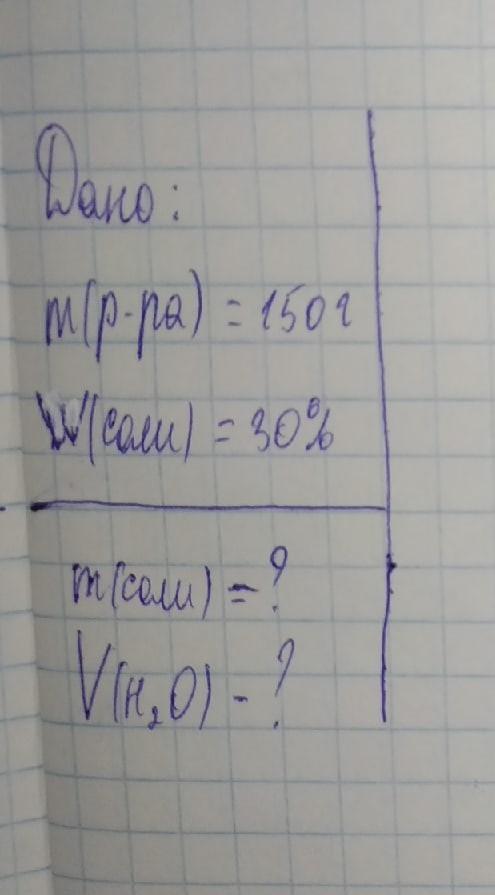 Дано:
m(р-ра) = 150г
W(соли) = 30%
m(соли) = ?
V(H₂O) - ?